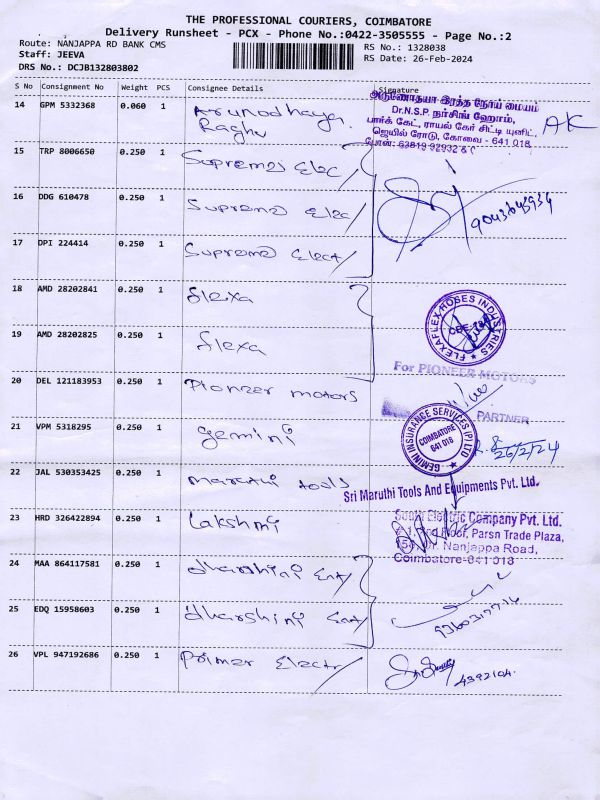 THE PROFESSIONAL COURIERS, COIMBATORE
Delivery Runsheet - PCX - Phone No.:0422-3505555 - Page No.:2
Route: NANJAPPA RD BANK CMS
RS No.: 1328038
Staff: JEEVA
RS Date: 26-Feb-2024
DRS No.: DCJB132803802
S No Consignment No Weight PCS Consignee Details Signature
14 GPM 5332368 0.060 1 Arunodhaya
Raghu
அருணோதயா இரத்த நேர்ய் மையம்
Dr.N.S.P. நர்சிங் ஹோம்,
பார்க் கேட், ராயல் கேர் சிட்டி யுனிட்,
ஜெயில் ரோடு, கோவை - 641 018
போன்: 63819 92932
AK
15 TRP 8006650 0.250 1 Supreme Elec
16 DDG 610478 0.250 1 Supreme Elec
9043645934
17 DPI 224414 0.250 1 Supreme Elect
18 AMD 28202841 0.250 1 Flexa
FLEXAFLEX HOSES INDUSTRIES
19 AMD 28202825 0.250 1 Flexa
For PIONEER MOTORS
20 DEL 121183953 0.250 1 Pioneer motors
PARTNER
21 VPM 5318295 0.250 1 Gemini
GEMINI INSURANCE SERVICES (P) LTD
COIMBATORE
641 018
26/2/24
22 JAL 530353425 0.250 1 Maruthi tools
Sri Maruthi Tools And Equipments Pvt. Ltd.
23 HRD 326422894 0.250 1 Lakshmi
Electric Company Pvt. Ltd.
Floor, Parsn Trade Plaza,
Nanjappa Road,
Coimbatore-641 018
24 MAA 864117581 0.250 1 dharshini Ent
25 EDQ 15958603 0.250 1 dharshini Ent
9360317714
26 VPL 947192686 0.250 1 Primer Electr
4392104